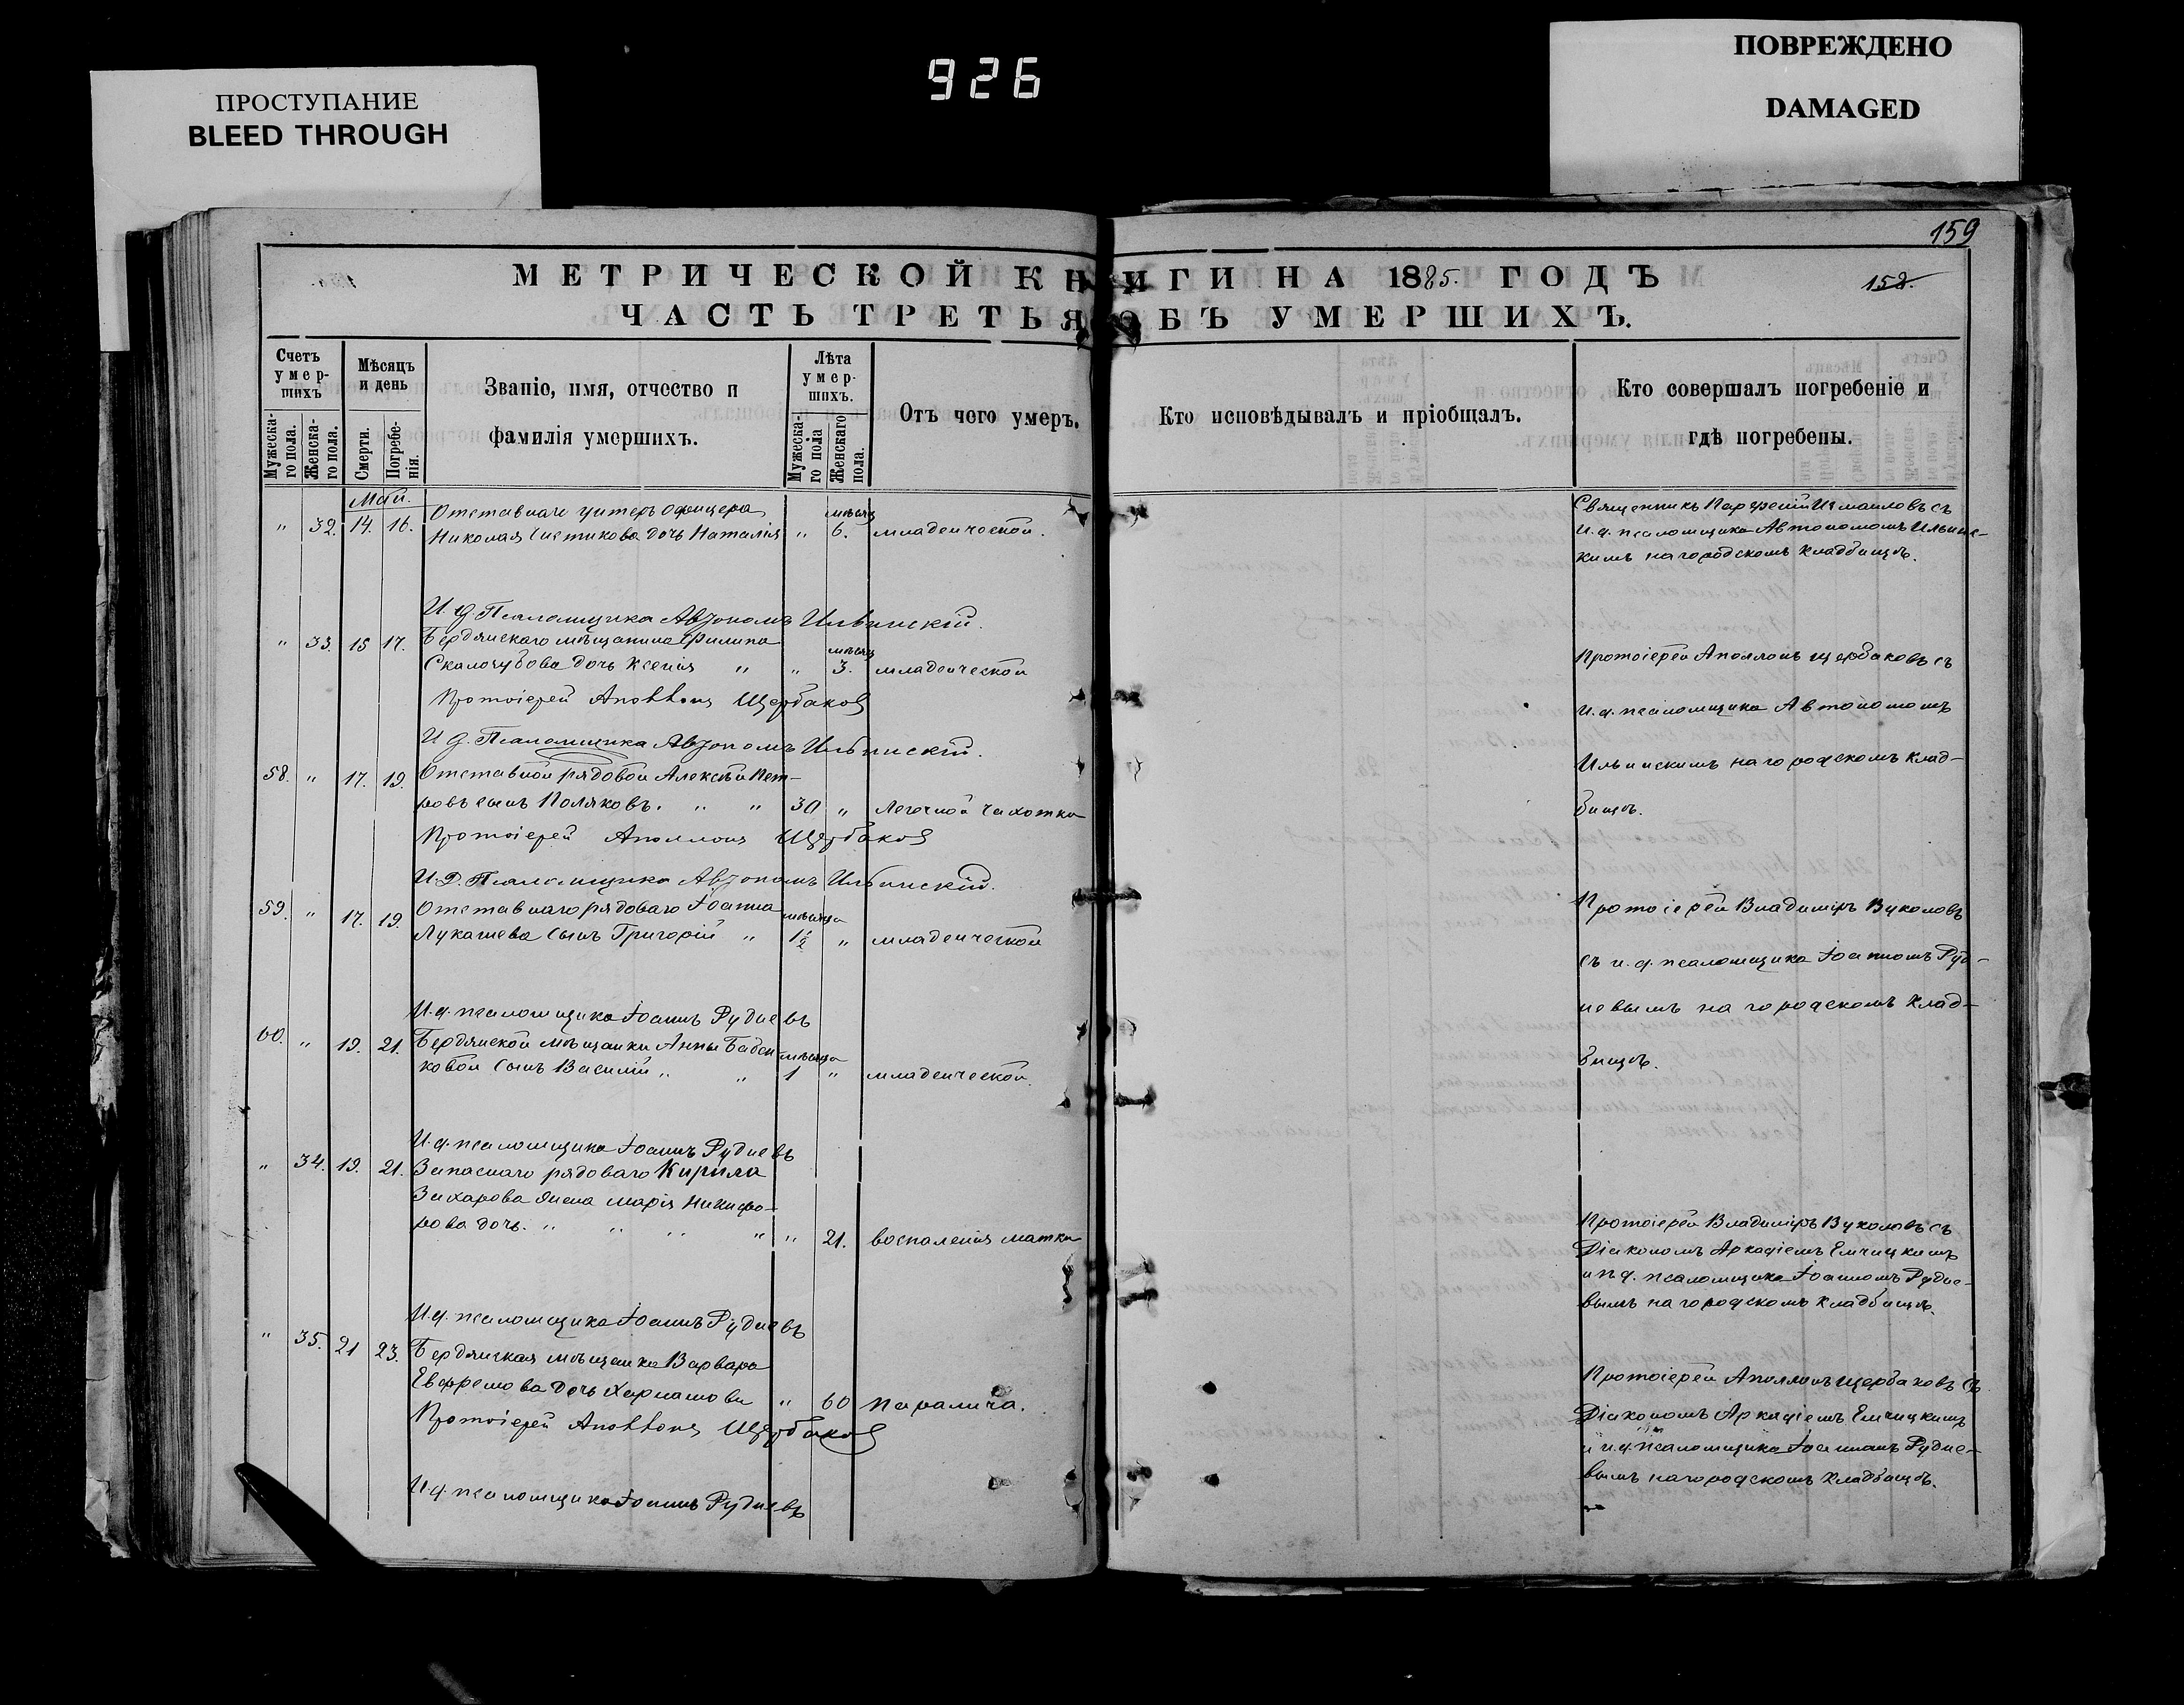 ПРОСТУПАНИЕ
BLEED THROUGH
926
ПОВРЕЖДЕНО
DAMAGED
159
МЕТРИЧЕСКОЙ КНИГИ НА 1885. ГОДЪ
158.
ЧАСТЬ ТРЕТЬЯ ОБЪ УМЕРШИХЪ.
Счетъ умер-шихъ
Мужеска-го пола.
Женска-го пола.
Мѣсяцъ и день
Смерти.
Погребе-нія.
Званіе, имя, отчество и
фамилія умершихъ.
Лѣта умер-шихъ.
Мужеска-го пола
Женскаго пола.
Отъ чего умеръ.
Кто исповѣдывалъ и пріобщалъ.
Кто совершалъ погребеніе и
гдѣ погребены.
Май.
Отставнаго унтеръ офицера мѣсяц
" 32. 14. 16. Николая дочь Наталія " 6. младенческой.
Священникъ Парфеній Измаиловъ съ
и. д. псаломщика Автономомъ Ильинс-
кимъ на городскомъ кладбищѣ.
И. д. Псаломщика Автономъ Ильинскій.
" 33. 15 17. Бердянскаго мѣщанина Филипа мѣсяц
Скалозубова дочь Ксенія " " 3. младенческой
Протоіерей Аполлонъ Щербаковъ съ
Протоіерей Аполлонъ Щербаков
и. д. псаломщика Автономомъ
И д. Псаломщика Автономъ Ильинскій.
Ильинскимъ на городскомъ клад-
58. " 17. 19. Отставной рядовой Алексѣй Пет-
ровъ сынъ Поляковъ. " " 30 " Легочной чахотки
бищѣ.
Протоіерей Аполлонъ Щербаков
И. Д. Псаломщика Автономъ Ильинскій.
59. " 17. 19. Отставнаго рядоваго Іоанна мѣсяца
Лукашева сынъ Григорій " 1½ " младенческой
Протоіерей Владиміръ Вуколовъ
съ и. д. псаломщика Іоанномъ Руд-
невымъ на городскомъ клад-
бищѣ.
И. д. псаломщика Іоаннъ Рудневъ
60. " 19. 21. Бердянской мѣщанки Анны Бабен- мѣсяца
ковой сынъ Василій " " 1 " младенческой.
И. д. псаломщика Іоаннъ Рудневъ
" 34. 19. 21. Запаснаго рядоваго Кирила
Захарова жена Марія Никифо-
рова дочь. " " " " " 21. воспаленія матки
Протоіерей Владиміръ Вуколовъ съ
Діакономъ Аркадіемъ Емчицкимъ
и и д. псаломщика Іоанномъ Рудне-
вымъ на городскомъ кладбищѣ.
И. д. псаломщика Іоаннъ Рудневъ
" 35. 21 23. Бердянская мѣщанка Варвара
Евфремова дочь " 60 паралича.
Протоіерей Аполлонъ Щербаков
Протоіерей Аполлонъ Щербаковъ съ
Діакономъ Аркадіемъ Емчицкимъ
и и. д. псаломщика Іоанномъ Рудне-
вымъ на городскомъ кладбищѣ.
И. д. псаломщика Іоаннъ Рудневъ